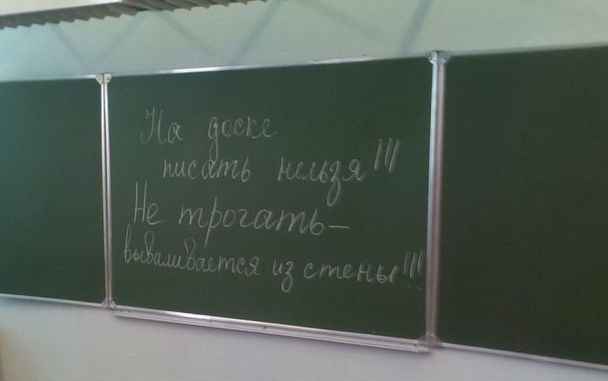 На доске
писать нельзя!!!
Не трогать –
вываливается из стены!!!